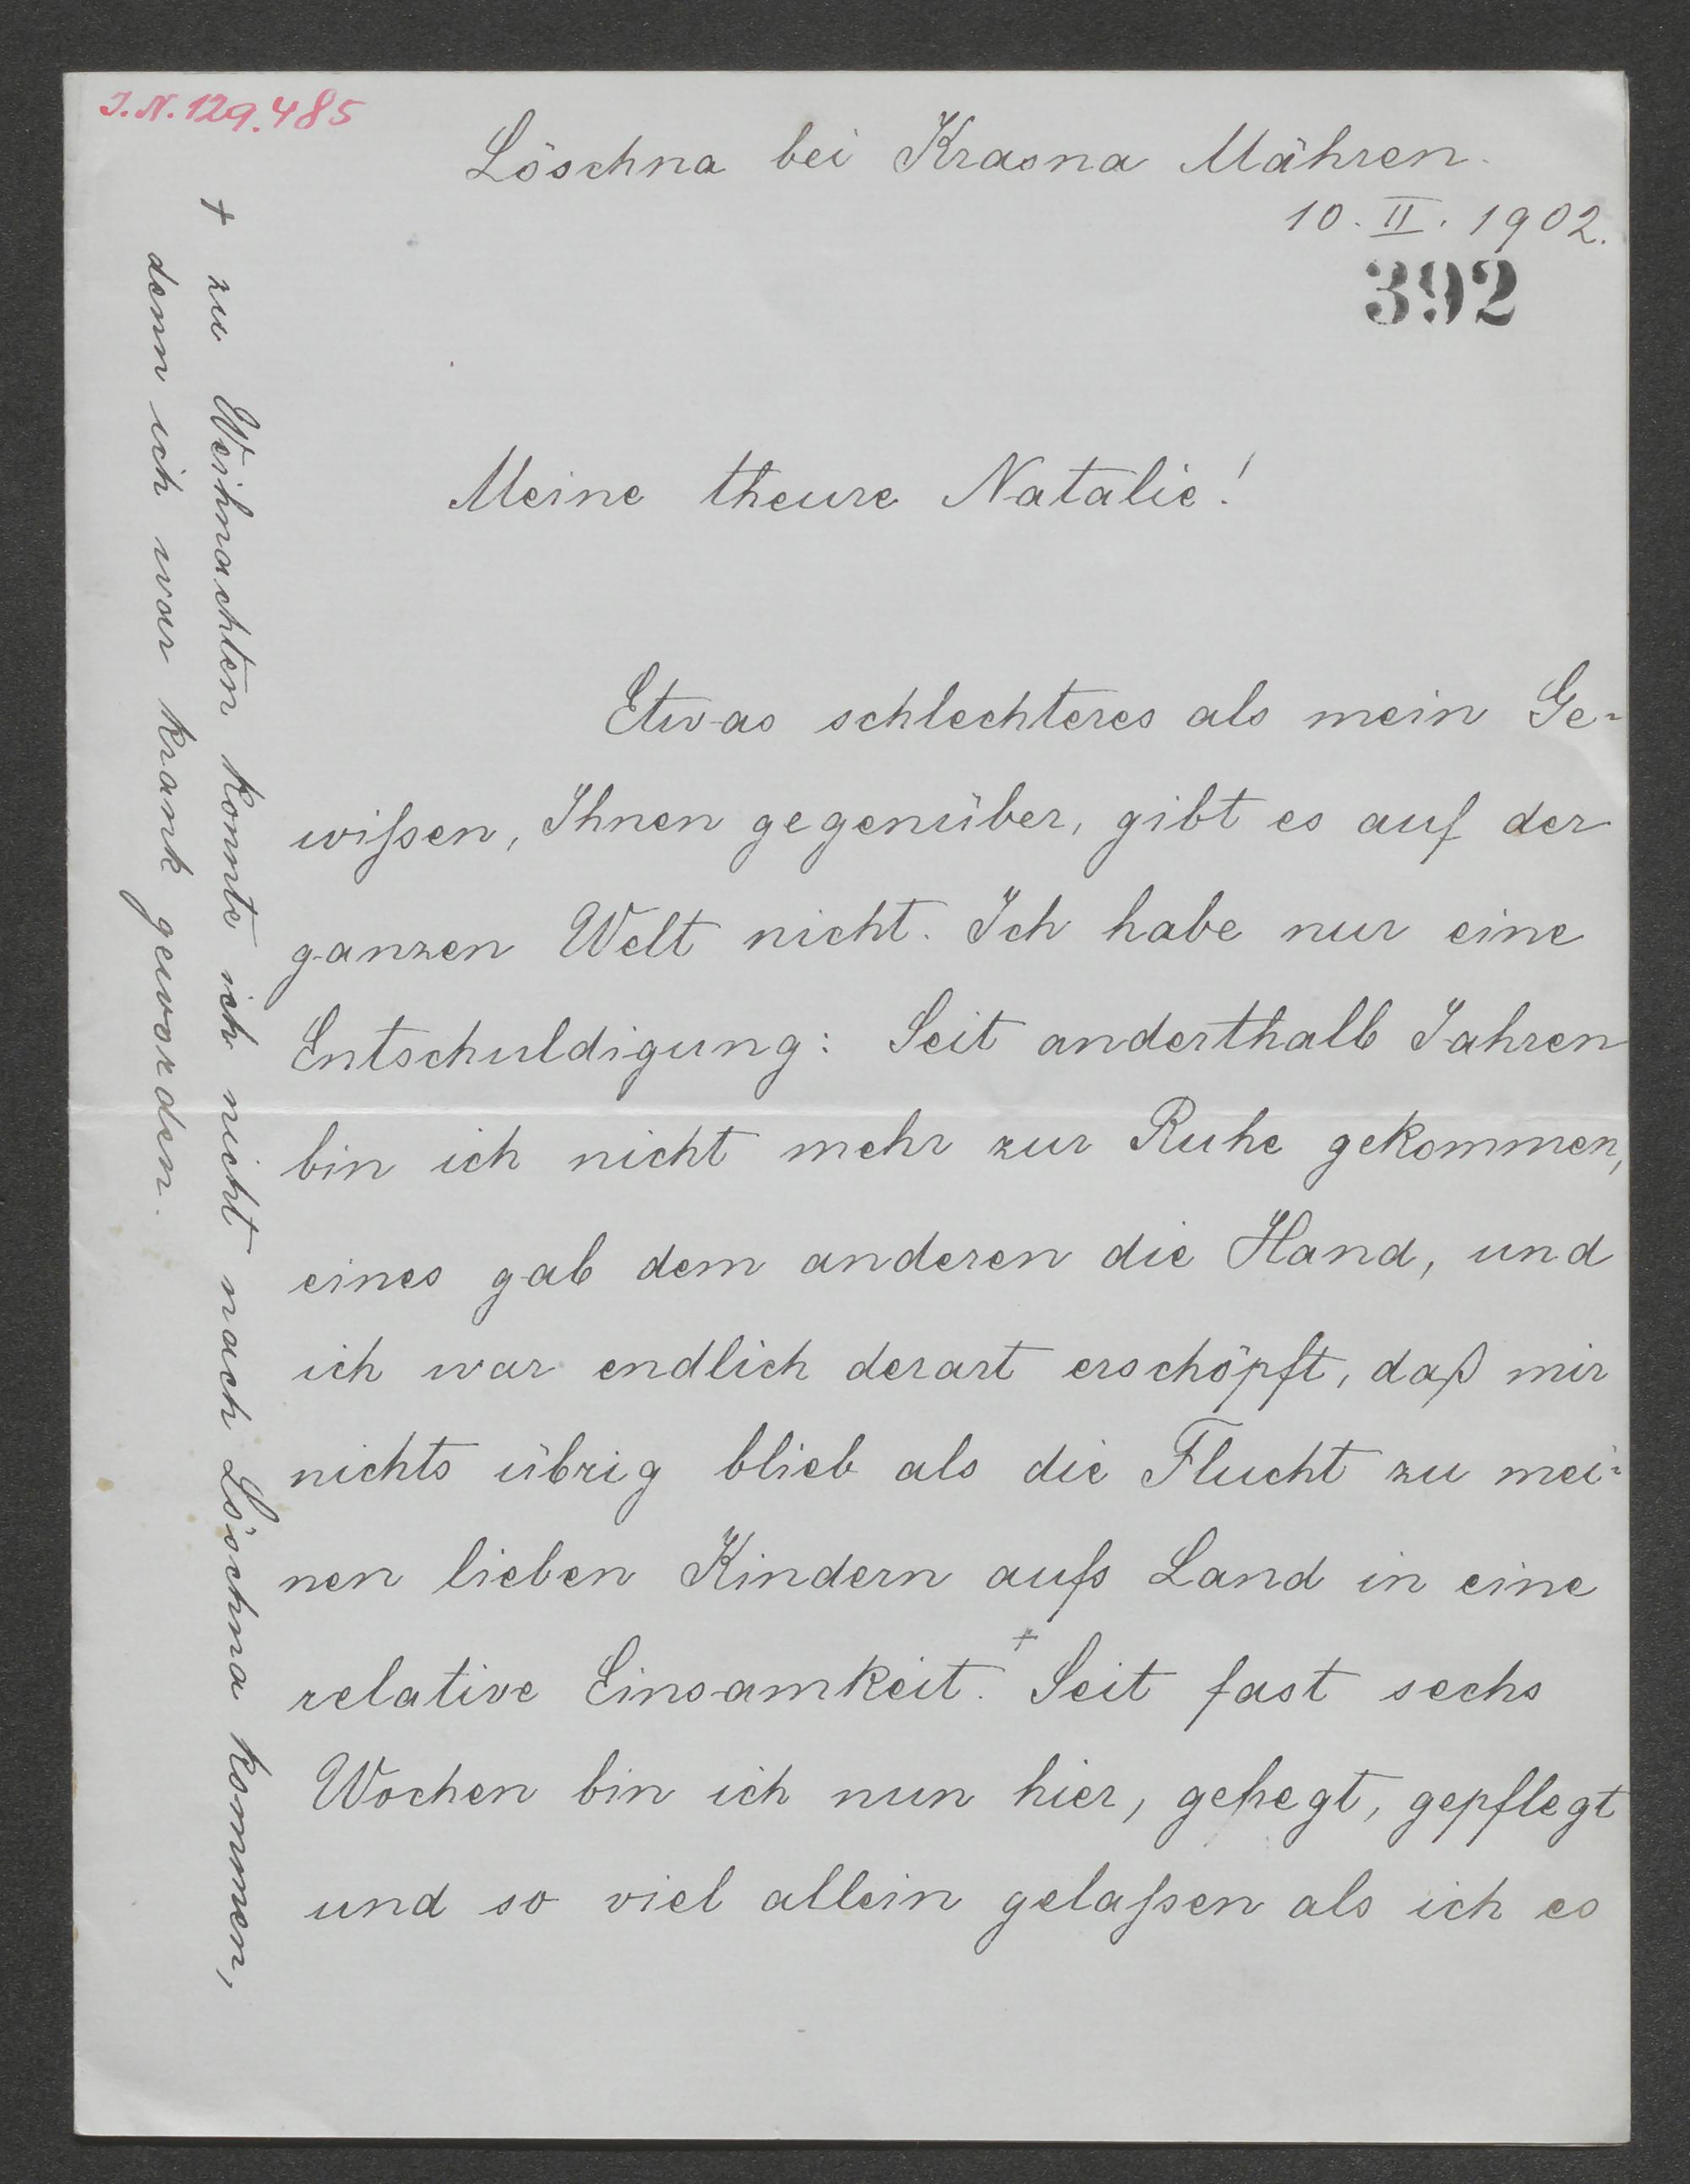 I.N. 129.485
Löschna bei Krasna Mähren.
10. II. 1902.
392
Meine theure Natalie!
Etwas schlechteres als mein Ge-
wißen, Ihnen gegenüber, gibt es auf der
ganzen Welt nicht. Ich habe nur eine
Entschuldigung: Seit anderthalb Jahren
bin ich nicht mehr zur Ruhe gekommen,
eines gab dem anderen die Hand, und
ich war endlich derart erschöpft, daß mir
nichts übrig blieb als die Flucht zu mei-
nen lieben Kindern aufs Land in eine
relative Einsamkeit.+ Seit fast sechs
Wochen bin ich nun hier, gehegt, gepflegt
und so viel allein gelaßen als ich es
+ zu Weihnachten konnte ich nicht nach Löschna kommen,
denn ich war krank geworden.